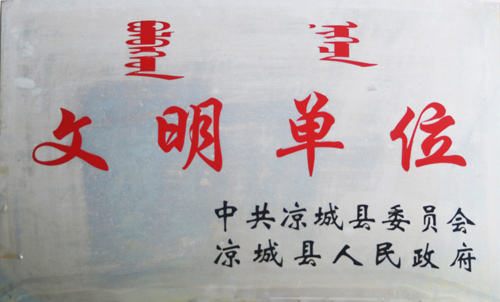 文明单位
中共凉城县委员会
凉城县人民政府